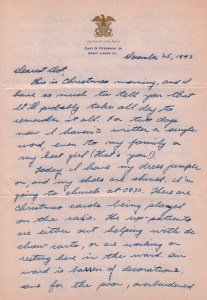 UNITED STATES NAVY
GREAT LAKES, ILL.
December 25, 1943
Dearest Dot,
This is Christmas morning, and I
have so much to tell you that
it'll probably take all day to
remember it all. For two days
now I haven't written a single
word, even to my family or
my best girl (that's you!)
Today I have my dress jumper
on, and my shoes are shined. I'm
going to church at 0930. There are
Christmas carols being played
on the radio. The up-patients
are either out helping with the
chow carts, or are working or
resting here in the ward. Our
ward is barren of decorations
save for the poor, overburdened